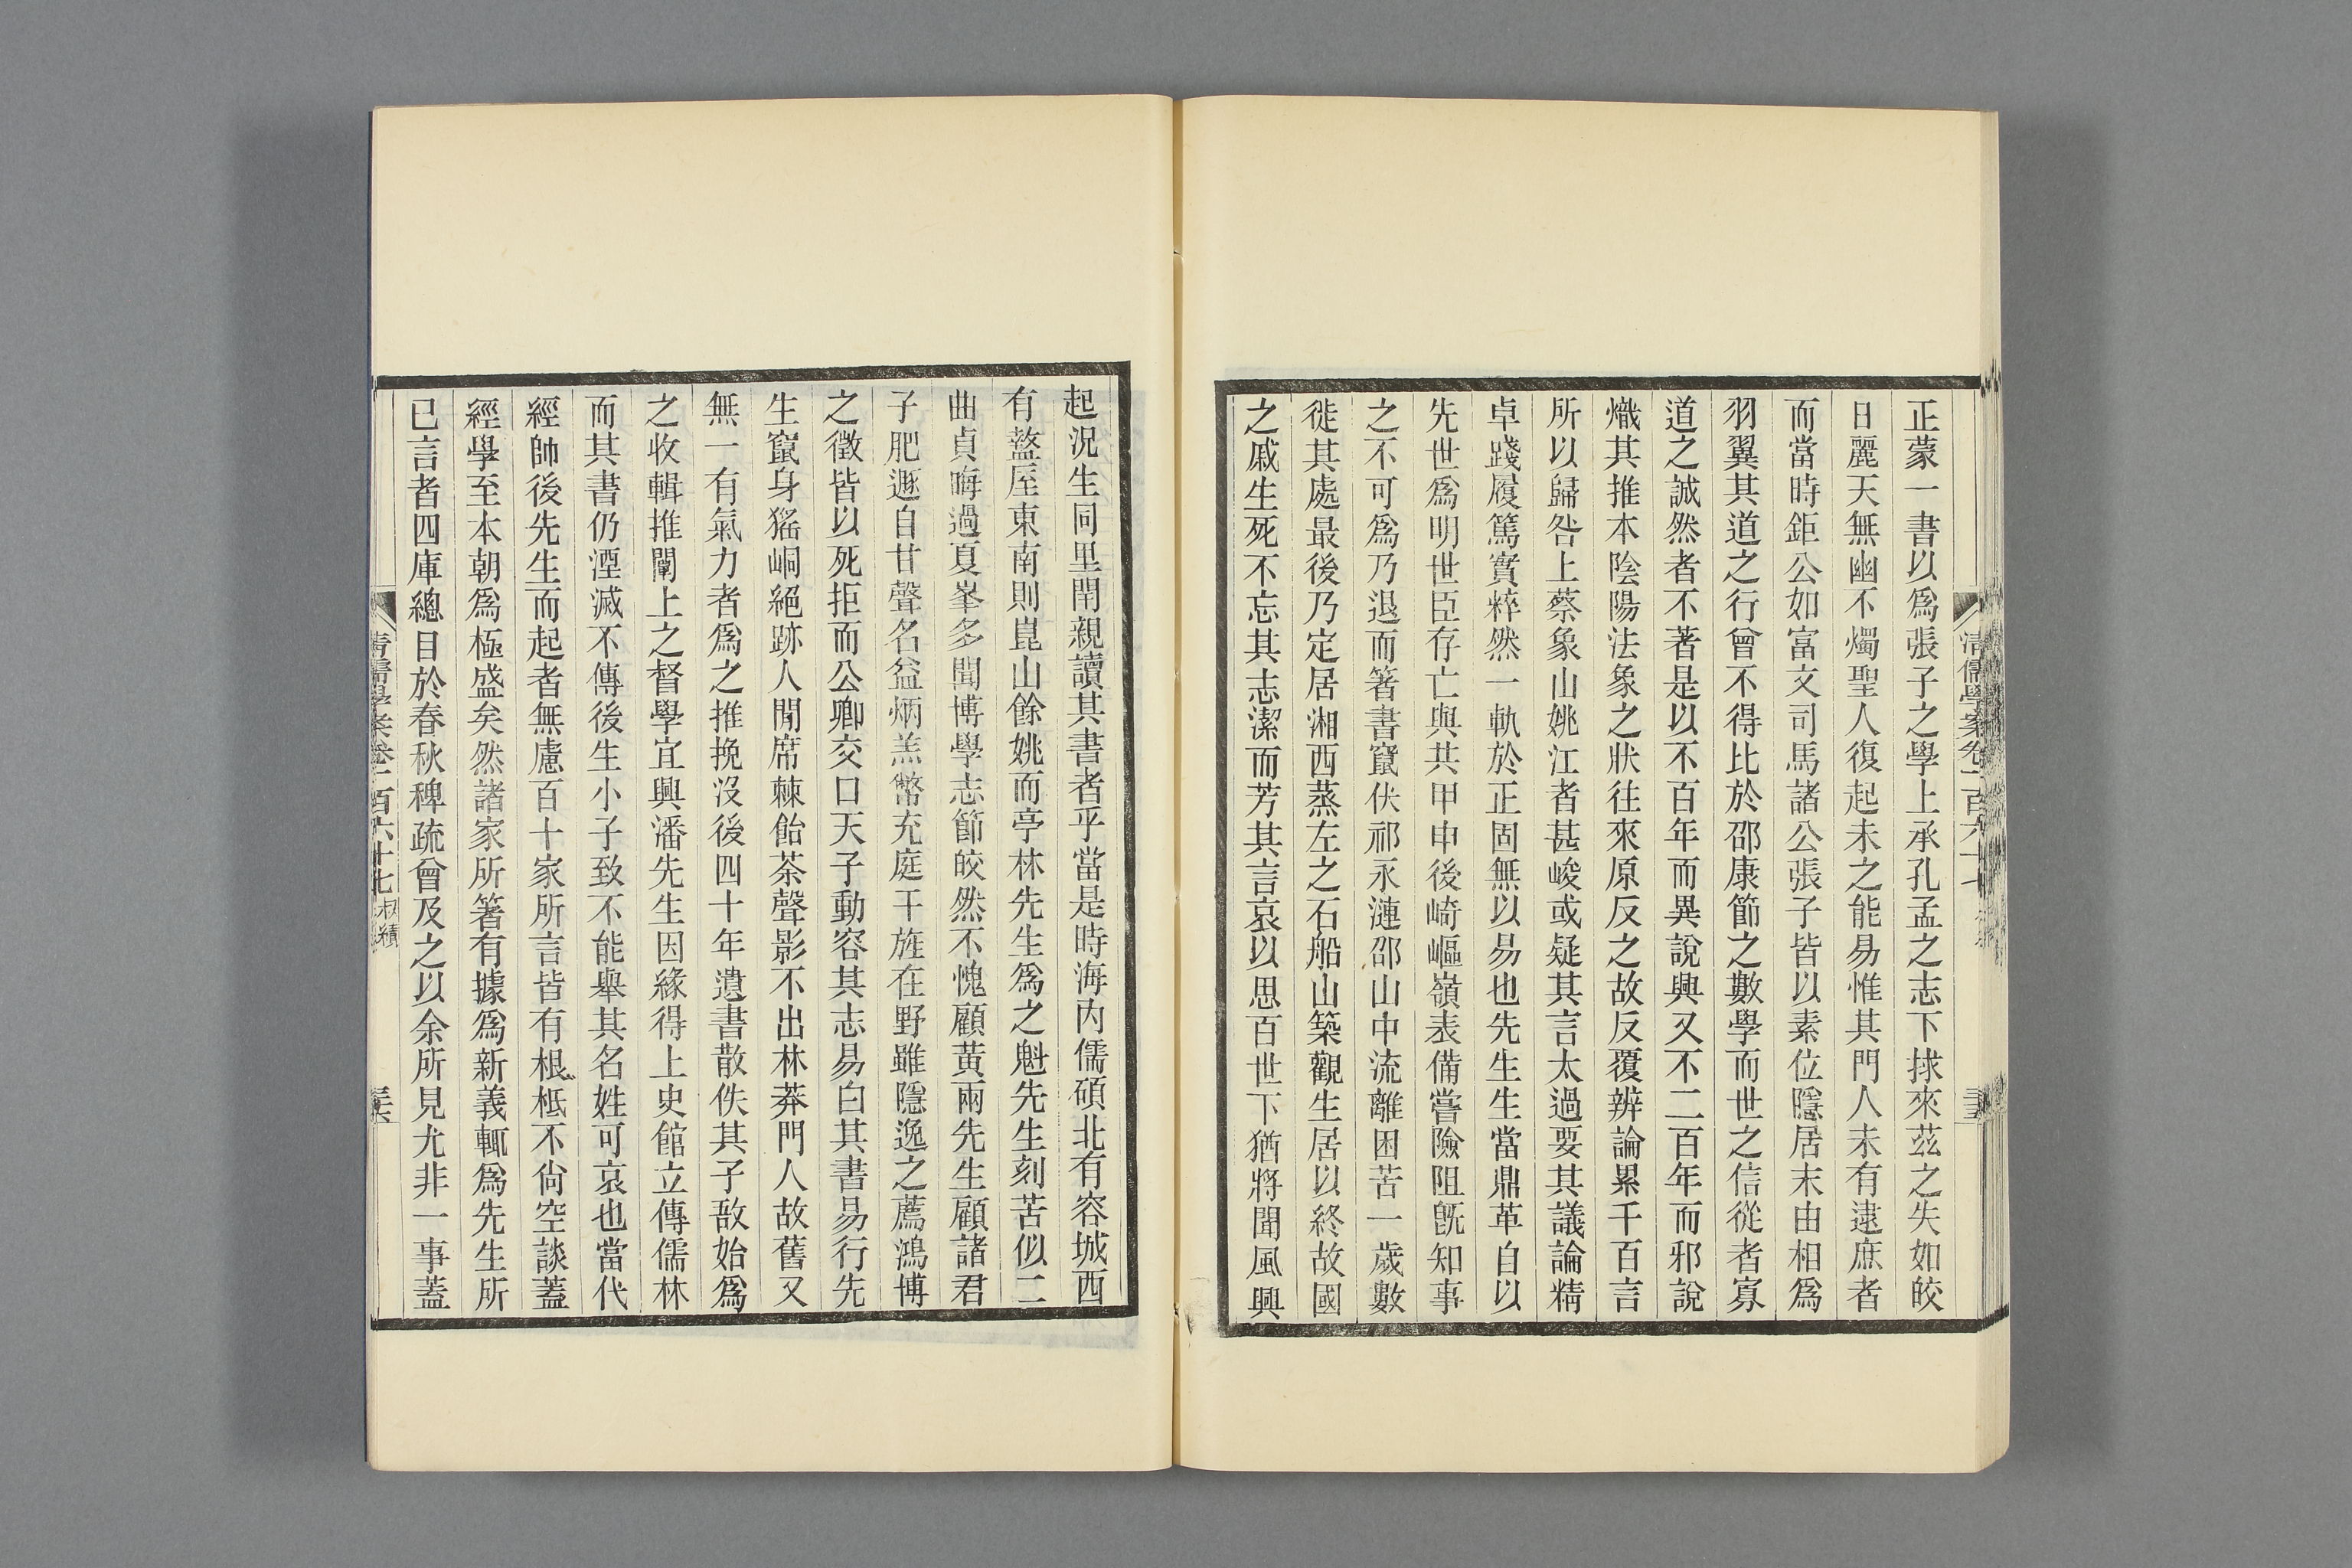 正蒙一書以爲張子之學上承孔孟之志下捄來茲之失如皎
日麗天無幽不燭聖人復起未之能易惟其門人未有逮庶者
而當時鉅公如富文司馬諸公張子皆以素位隱居末由相爲
羽翼其道之行曾不得比於邵康節之數學而世之信從者寡
道之誠然者不著是以不百年而異說興又不二百年而邪說
熾其推本陰陽法象之狀往來原反之故反覆辨論累千百言
所以歸咎上蔡象山姚江者甚峻或疑其言太過要其議論精
卓踐履篤實粹然一軌於正固無以易也先生生當鼎革自以
先世爲明世臣存亡與共甲申後崎嶇嶺表備嘗險阻旣知事
之不可爲乃退而箸書竄伏祁永漣邵山中流離困苦一歲數
徙其處最後乃定居湘西蒸左之石船山築觀生居以終故國
之戚生死不忘其志潔而芳其言哀以思百世下猶將聞風興
起況生同里閈親讀其書者乎當是時海內儒碩北有容城西
有盩厔東南則崑山餘姚而亭林先生爲之魁先生刻苦似二
曲貞晦過夏峯多聞博學志節皎然不愧顧黃兩先生顧諸君
子肥遯自甘聲名益炳羔幣充庭干旌在野雖隱逸之薦鴻博
之徵皆以死拒而公卿交口天子動容其志易白其書易行先
生竄身猺峒絕跡人閒席棘飴荼聲影不出林莽門人故舊又
無一有氣力者爲之推挽沒後四十年遺書散佚其子敔始爲
之收輯推闡上之督學宜興潘先生因緣得上史館立傳儒林
而其書仍湮滅不傳後生小子致不能舉其名姓可哀也當代
經師後先生而起者無慮百十家所言皆有根柢不尙空談蓋
經學至本朝爲極盛矣然諸家所箸有據爲新義輒爲先生所
已言者四庫總目於春秋稗疏曾及之以余所見尤非一事蓋
清儒學案卷一百六十七 叔績